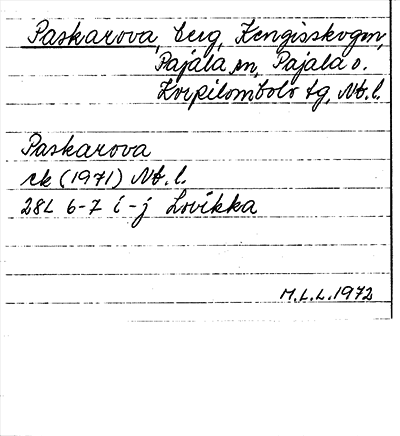 Paskarova, berg, Kengisskogen,
Pajala sn, Pajala o.
Korpilombolo tg, Nb.l.
Paskarova
rk (1971) Nb.l.
28L 6-7 i-j Lovikka
M.L.L.1972